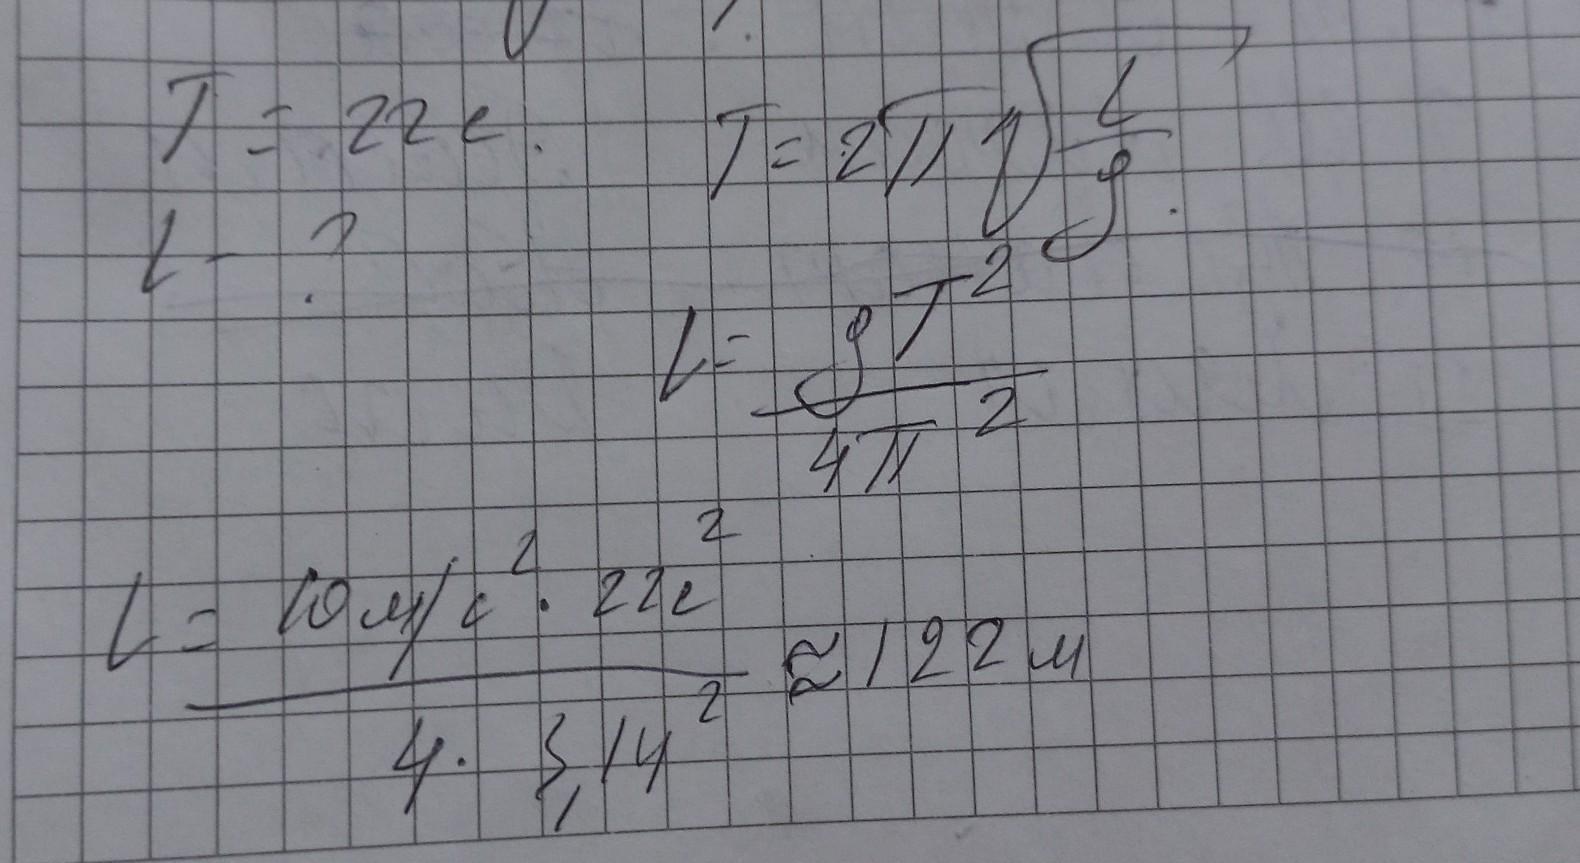 T = 22 с.
T = 2π√(l/g).
l - ?
l = gT²/4π²
l = 10 м/с² · 22с²/4 · 3,14² ≈ 122 м